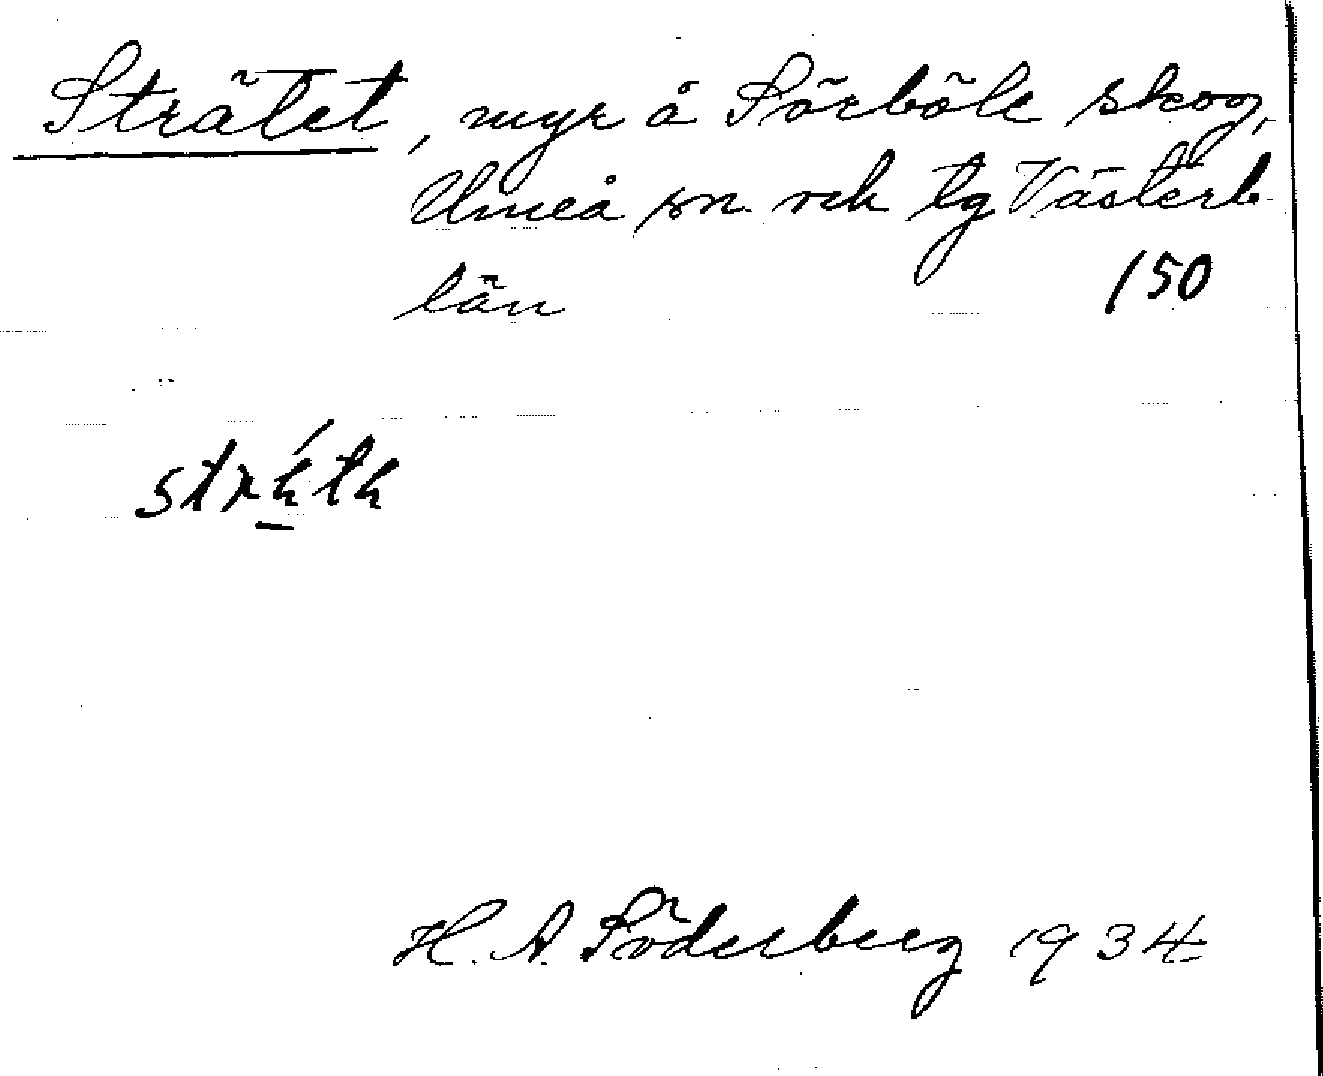 Strätet, myr å Sörböle skog,
Umeå sn och tg Västerb.
län
150
H. A. Söderberg 1934